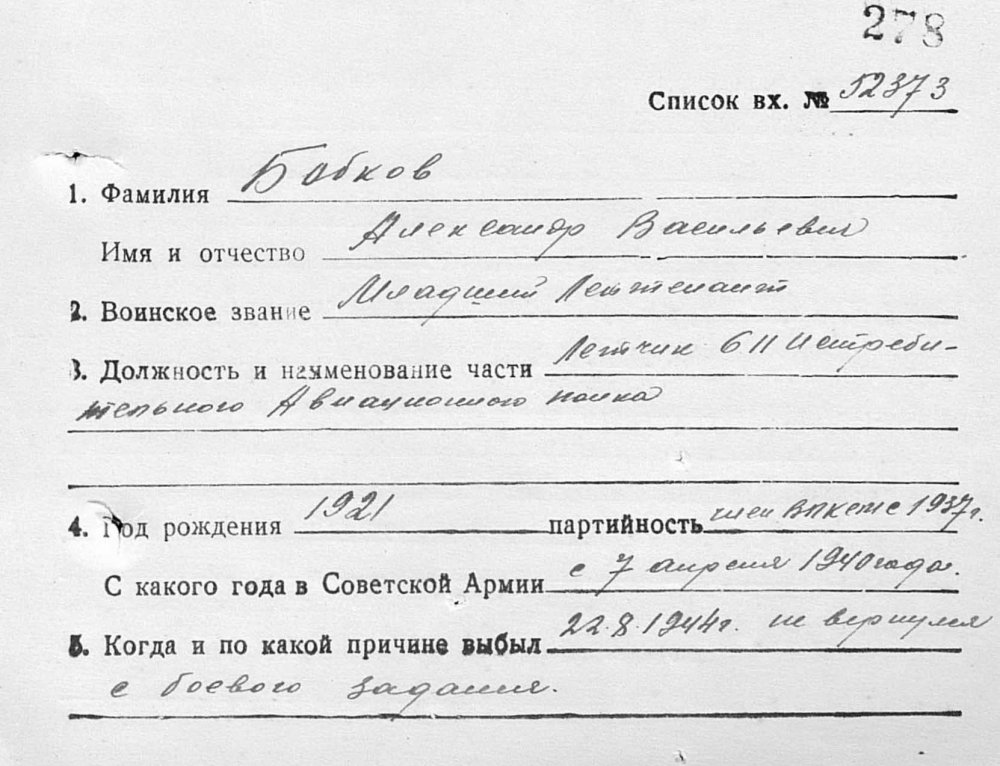 278
Список вх. № 52373
1. Фамилия Бобков
Имя и отчество Александр Васильевич
2. Воинское звание Младший Лейтенант
3. Должность и наименование части Летчик 611 Истреби-
тельного Авиационного полка
4. Год рождения 1921 партийность член ВЛКСМ с 1937г.
С какого года в Советской Армии с 7 апреля 1940 года.
5. Когда и по какой причине выбыл 22.8.1944г. не вернулся
с боевого задания.